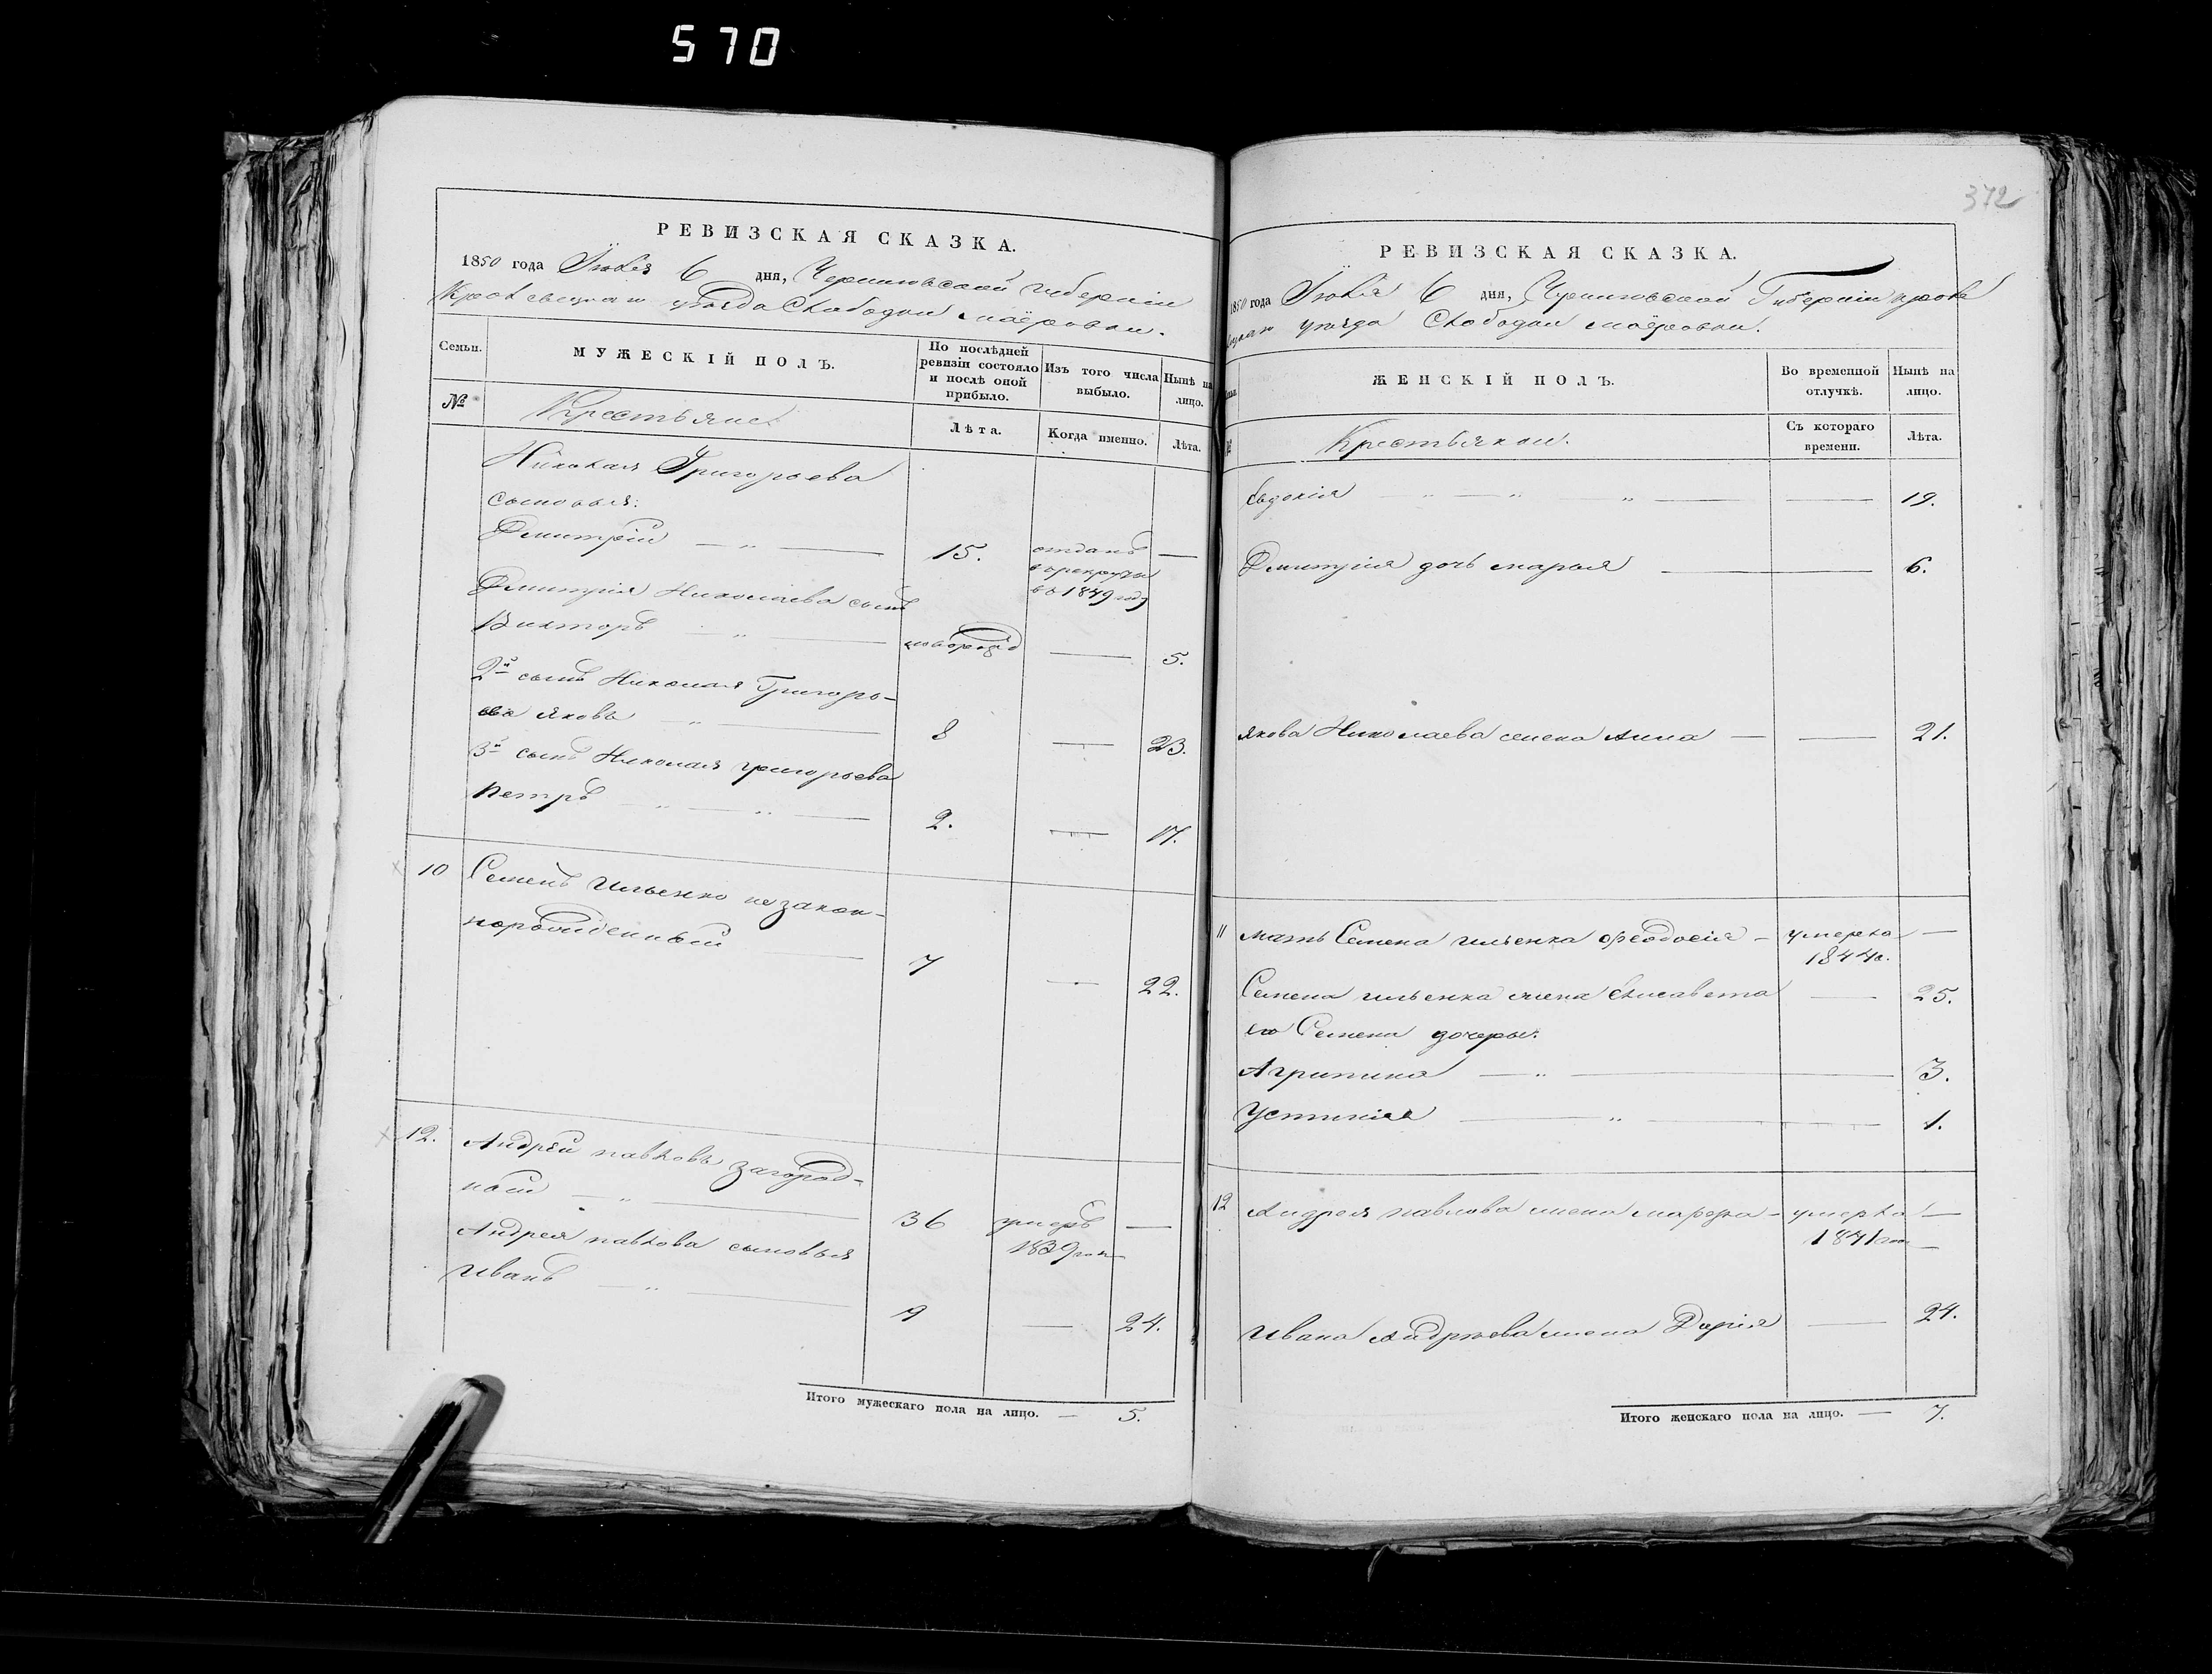 570
РЕВИЗСКАЯ СКАЗКА.
1850 года Іюля 6 дня, Черниговской губерніи
уѣзда Слободки
Семьи.
МУЖЕСКІЙ ПОЛЪ.
По послѣдней ревизіи состояло и послѣ оной прибыло.
Изъ того числа выбыло.
Нынѣ на лицо.
№
Крестьяне
Лѣта.
Когда именно.
Лѣта.
Николая Григорьева
сыновья:
Дмитрій — „ — 15. отданъ —
в рекруты
въ 1849 году
Дмитрія Николаева сынъ
Викторъ — „ — новорожд — 5.
2й сынъ Николая Григорь-
ева Яковъ — „ — 8 — 23.
3й сынъ Николая Григорьева
Петръ — „ — „ — 2. — 17.
10 Семенъ Ильенко незакон-
норожденный — 7 — 22.
12. Андрей Павловъ Загород-
ной — „ — 36 умеръ —
1839 года
Андрея Павлова сыновья
Иванъ — „ — 9 — 24.
Итого мужескаго пола на лицо. — 5.
372
РЕВИЗСКАЯ СКАЗКА.
1850 года Іюля 6 дня, Черниговской Губерніи
уѣзда Слободки
ЖЕНСКІЙ ПОЛЪ.
Во временной отлучкѣ.
Нынѣ на лицо.
Крестьянки.
Съ котораго времени.
Лѣта.
Евдокія — „ — „ — „ — — 19.
Дмитрія дочь Марья — 6.
Якова Николаева жена Анна — — 21.
11 Мать Семена Ильенка Феодосія — умерла —
1844 г.
Семена Ильенка жена Елисавета — 25.
его Семена дочери:
Агрипина — „ — 3.
Устинія — „ — 1.
12 Андрея Павлова жена — умерла —
1841 —
Ивана Андреева жена Дарія — 24.
Итого женскаго пола на лицо. — 7.